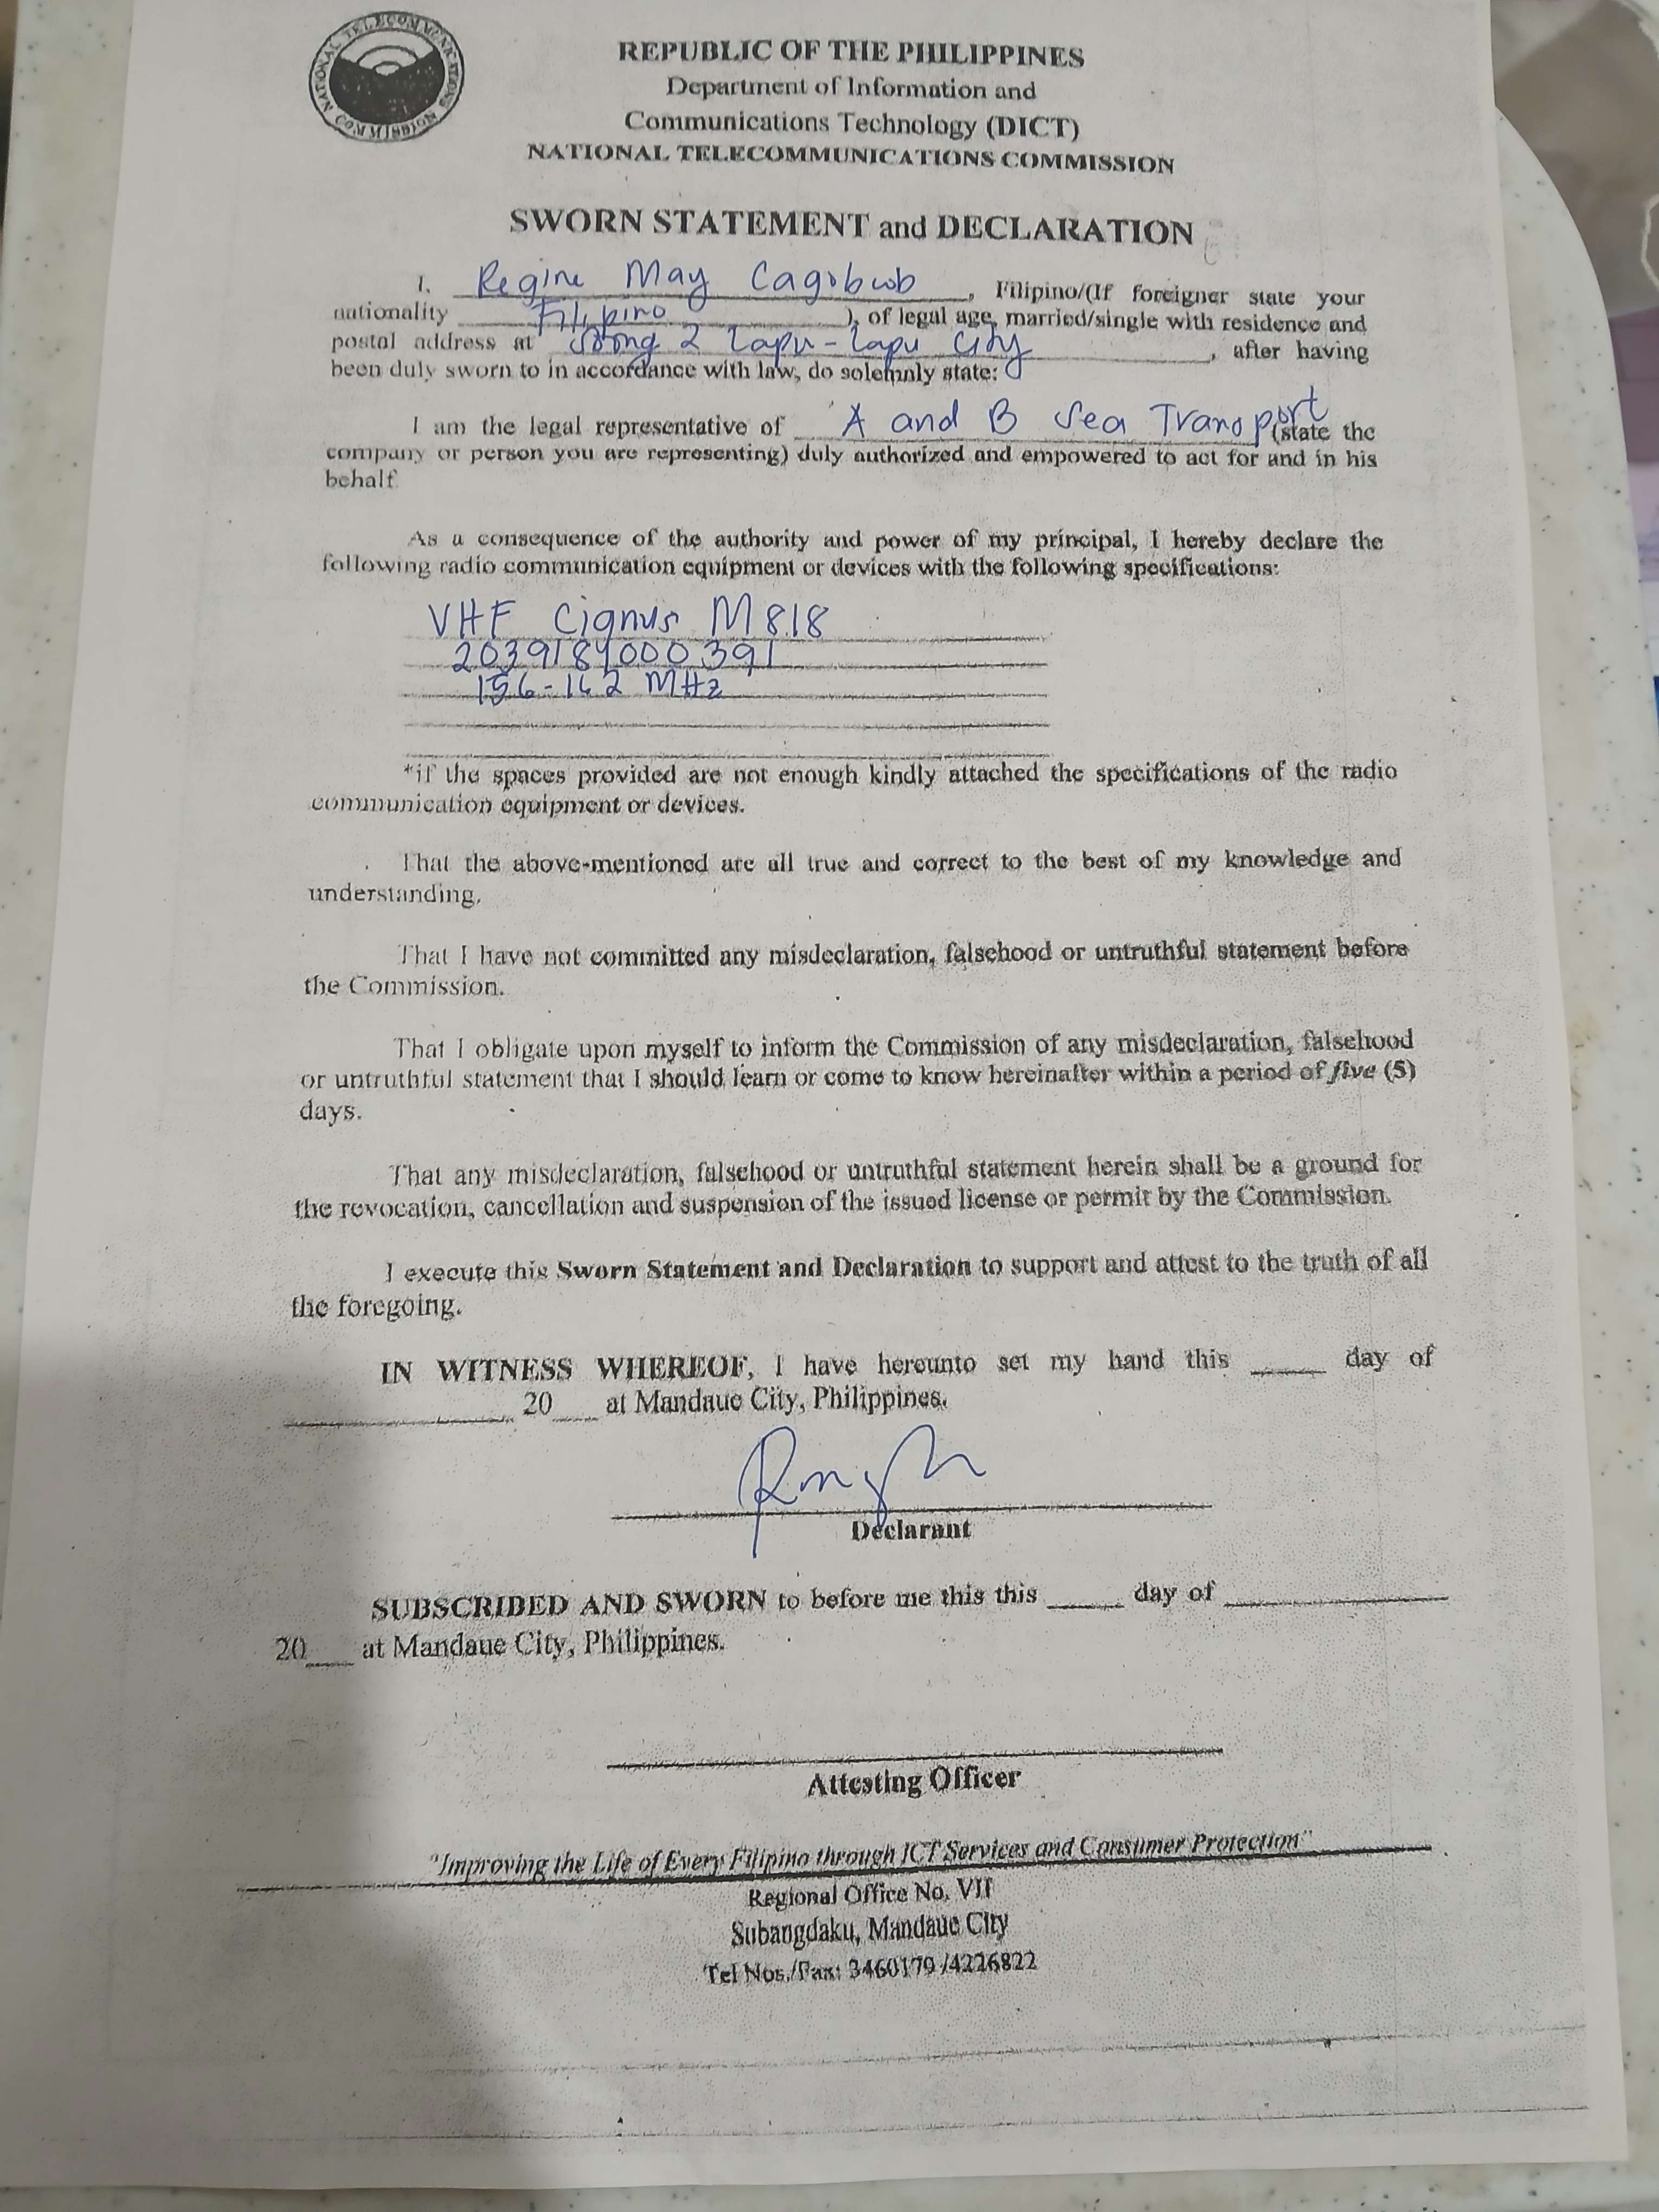 NATIONAL TELECOMMUNICATIONS COMMISSION
REPUBLIC OF THE PHILIPPINES
Department of Information and
Communications Technology (DICT)
NATIONAL TELECOMMUNICATIONS COMMISSION
SWORN STATEMENT and DECLARATION
I, Regine May Cagobcob, Filipino/(If foreigner state your
nationality Filipino), of legal age, married/single with residence and
postal address at 2 Lapu-Lapu City, after having
been duly sworn to in accordance with law, do solemnly state:
I am the legal representative of A and B Sea Transport (state the
company or person you are representing) duly authorized and empowered to act for and in his
behalf.
As a consequence of the authority and power of my principal, I hereby declare the
following radio communication equipment or devices with the following specifications:
VHF Cignus M818
2039184000391
156-162 MHz
*if the spaces provided are not enough kindly attached the specifications of the radio
communication equipment or devices.
That the above-mentioned are all true and correct to the best of my knowledge and
understanding.
That I have not committed any misdeclaration, falsehood or untruthful statement before
the Commission.
That I obligate upon myself to inform the Commission of any misdeclaration, falsehood
or untruthful statement that I should learn or come to know hereinafter within a period of five (5)
days.
That any misdeclaration, falsehood or untruthful statement herein shall be a ground for
the revocation, cancellation and suspension of the issued license or permit by the Commission.
I execute this Sworn Statement and Declaration to support and attest to the truth of all
the foregoing.
IN WITNESS WHEREOF, I have hereunto set my hand this ____ day of
____ 20__ at Mandaue City, Philippines.
Declarant
SUBSCRIBED AND SWORN to before me this this ____ day of ____
20__ at Mandaue City, Philippines.
Attesting Officer
"Improving the Life of Every Filipino through ICT Services and Consumer Protection"
Regional Office No. VII
Subangdaku, Mandaue City
Tel Nos./Fax: 3460179 /4226822